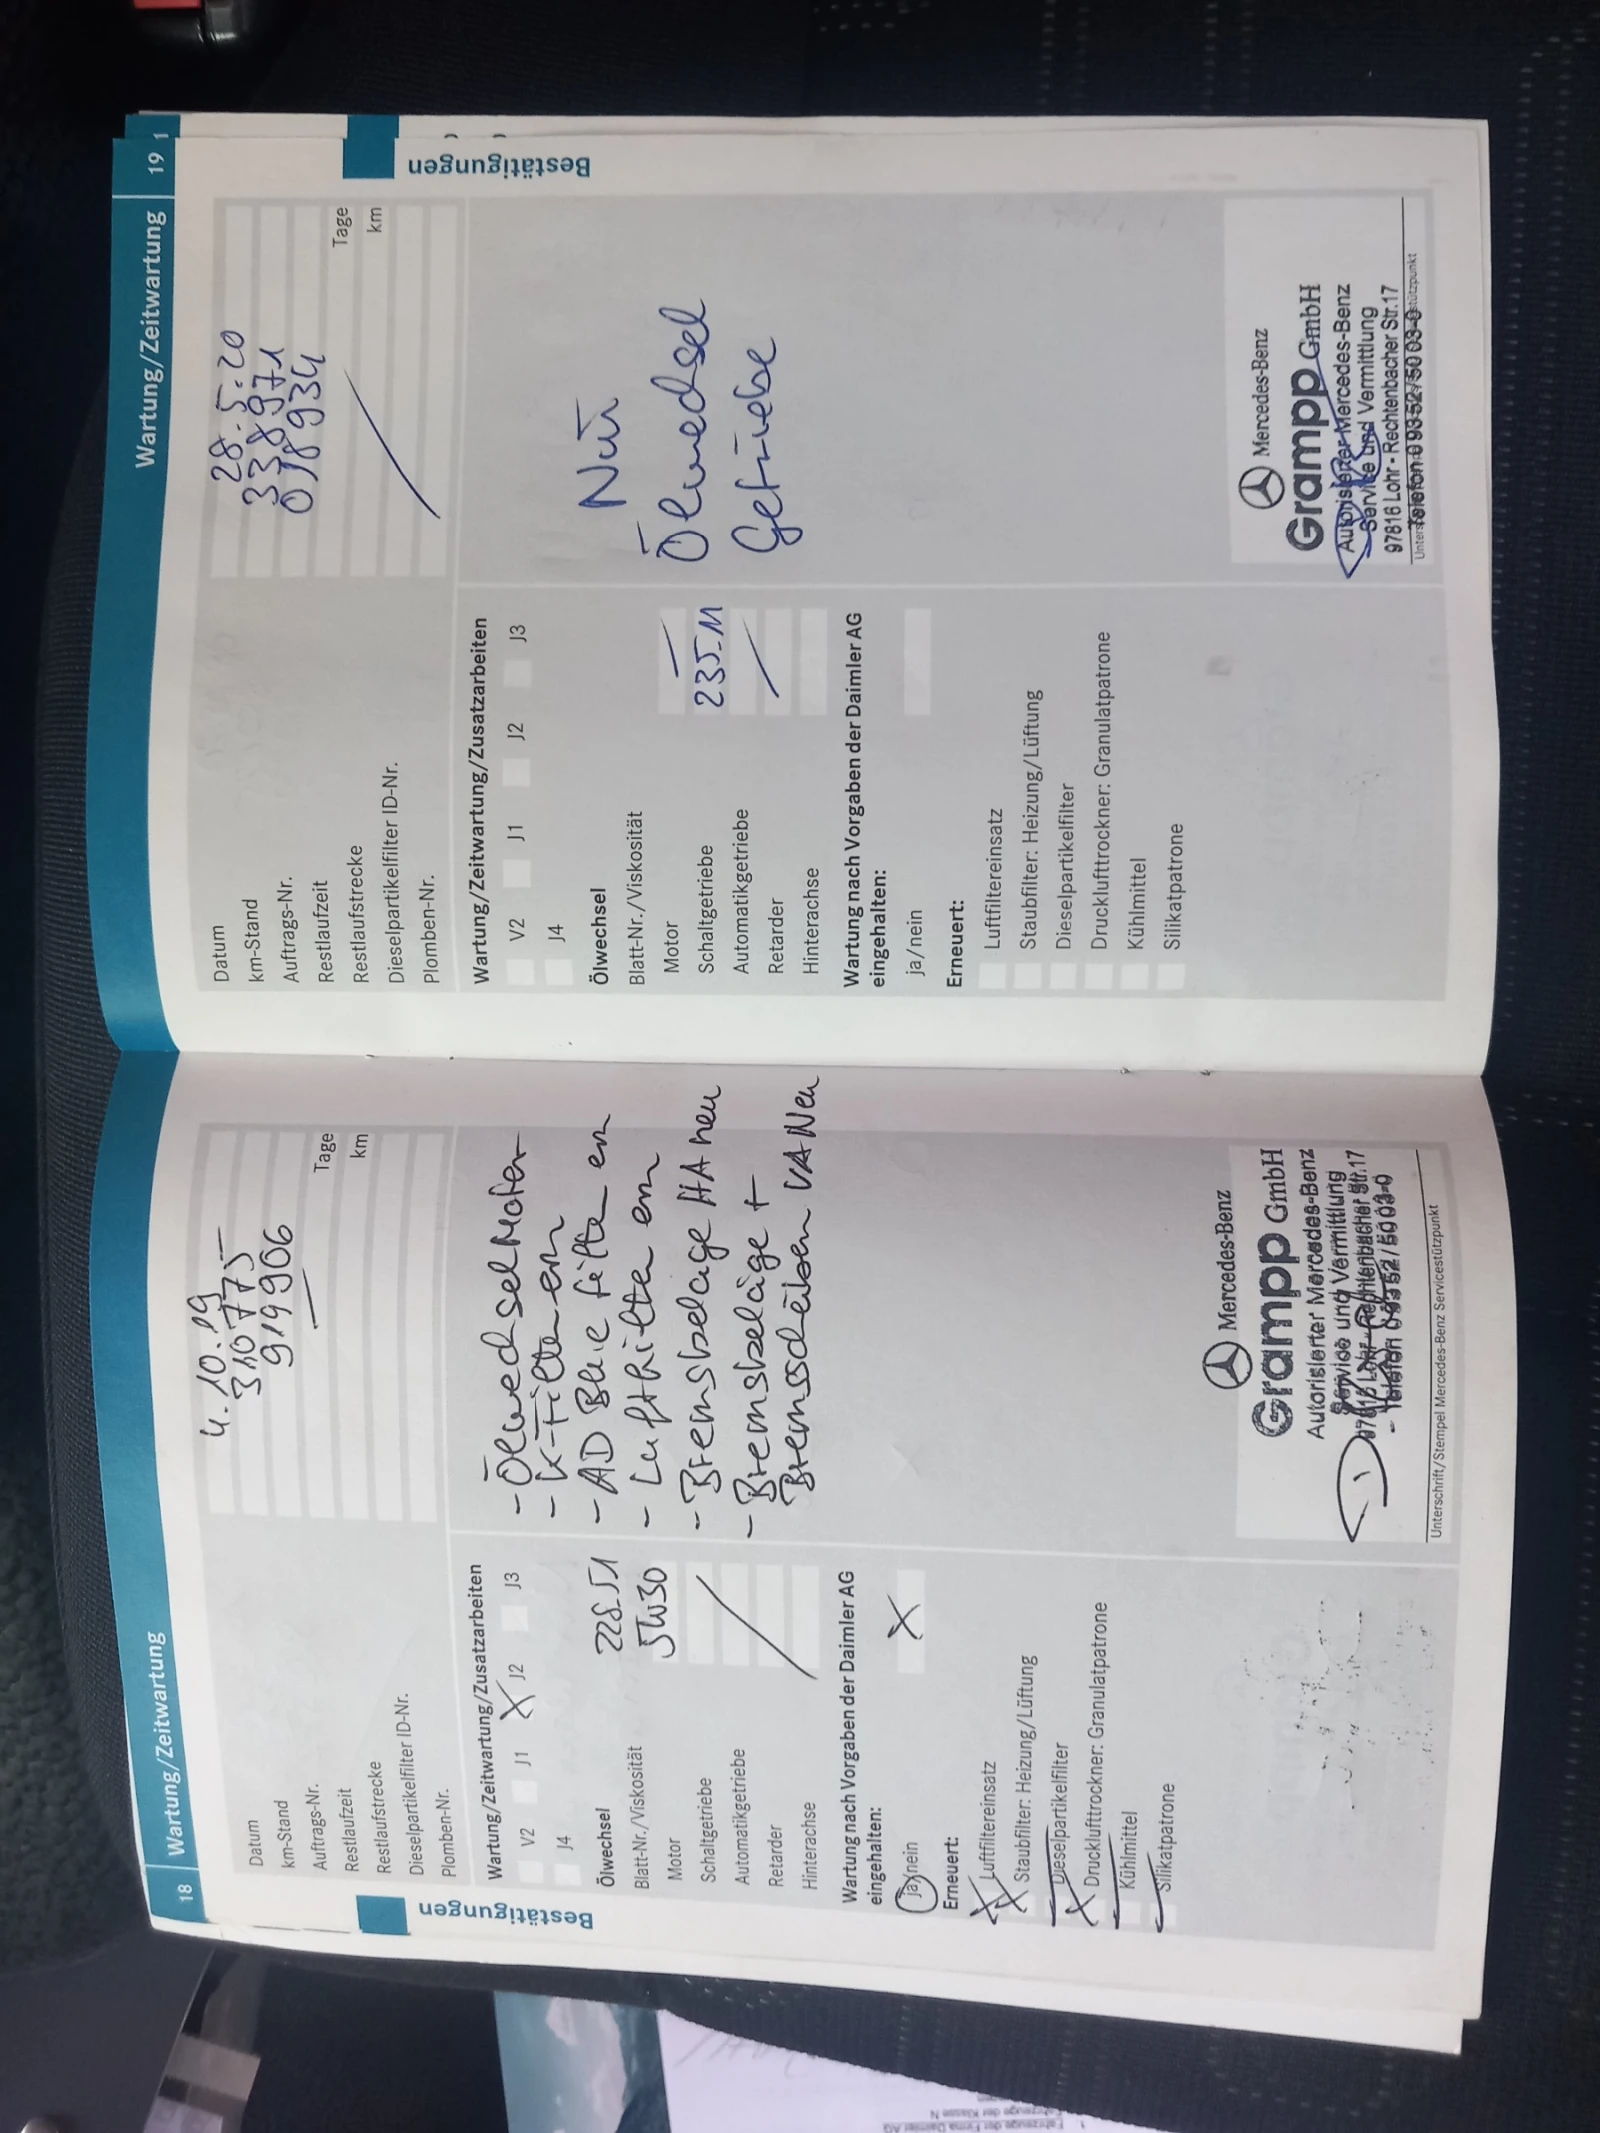 18 Wartung/Zeitwartung
Datum 4.10.19
km-Stand 310775
Auftrags-Nr. 919906
Restlaufzeit — Tage
Restlaufstrecke km
Dieselpartikelfilter ID-Nr.
Plomben-Nr.
Bestätigungen
Wartung/Zeitwartung/Zusatzarbeiten
V2 J1 X J2 J3
J4
Ölwechsel
Blatt-Nr./Viskosität 228.51
Motor 5W30
Schaltgetriebe
Automatikgetriebe
Retarder
Hinterachse
- Ölwechsel Motor
- K-Filter ern
- AD Blue Filter ern
- Luftfilter ern
- Bremsbeläge HA neu
- Bremsbeläge +
Bremsscheiben VA Neu
Wartung nach Vorgaben der Daimler AG
eingehalten:
ja/nein X
Erneuert:
X Luftfiltereinsatz
X Staubfilter: Heizung/Lüftung
Dieselpartikelfilter
X Drucklufttrockner: Granulatpatrone
Kühlmittel
Silikatpatrone
Mercedes-Benz
Grampp GmbH
Autorisierter Mercedes-Benz
Service und Vermittlung
97816 Lohr - Rechtenbacher Str.17
Telefon 09352/5003-0
Unterschrift/Stempel Mercedes-Benz Servicestützpunkt
Wartung/Zeitwartung 19 1
Datum 28.5.20
km-Stand 338971
Auftrags-Nr. 018934
Restlaufzeit Tage
Restlaufstrecke km
Dieselpartikelfilter ID-Nr.
Plomben-Nr.
Bestätigungen
Wartung/Zeitwartung/Zusatzarbeiten
V2 J1 J2 J3
J4
Ölwechsel
Blatt-Nr./Viskosität
Motor —
Schaltgetriebe 235.11
Automatikgetriebe
Retarder
Hinterachse
Nur
Ölwechsel
Getriebe
Wartung nach Vorgaben der Daimler AG
eingehalten:
ja/nein
Erneuert:
Luftfiltereinsatz
Staubfilter: Heizung/Lüftung
Dieselpartikelfilter
Drucklufttrockner: Granulatpatrone
Kühlmittel
Silikatpatrone
Mercedes-Benz
Grampp GmbH
Autorisierter Mercedes-Benz
Service und Vermittlung
97816 Lohr - Rechtenbacher Str.17
Telefon 09352/5003-0
Fahrzeuge der Klasse N
Fahrzeuge der Firma Daimler AG